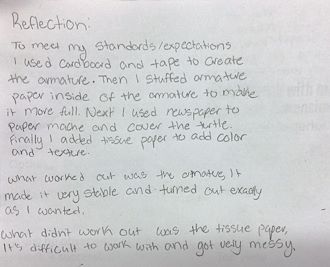 Reflection:
To meet my standards/expectations
I used cardboard and tape to create
the armature. Then I stuffed armature
paper inside of the armature to make
it more full. Next I used newspaper to
paper mache and cover the turtle.
Finally I added tissue paper to add color
and texture.
What worked out was the armature, It
made it very stable and turned out exactly
as I wanted.
What didnt work out was the tissue paper,
It's difficult to work with and got very messy.